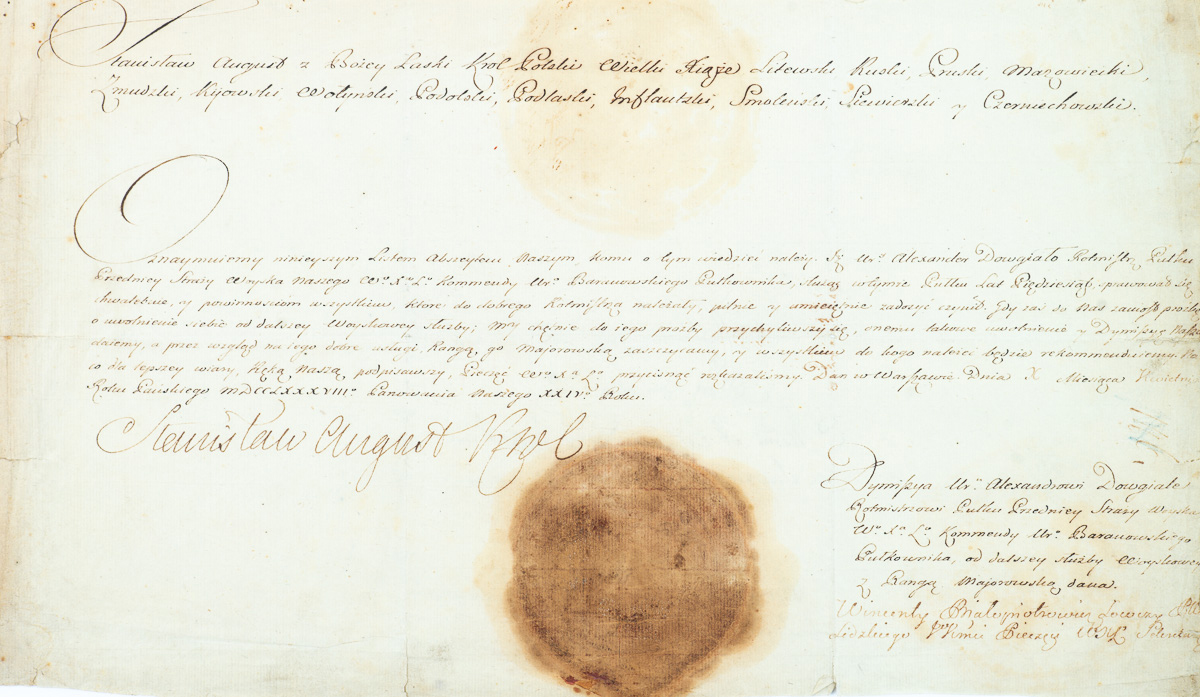 Stanisław August z Bożey Łaski Krol Polski Wielki Xiąże Litewski Ruski, Pruski, Mazowiecki,
Zmudzki, Kijowski Wołynski, Podolski, Podlaski, Inflantski, Smolenski, Siewierski y Czerniechowski.
Oznaymuiemy ninieyszym Listem Abszytem Naszym, komu o tym wiedzieć należy. Iż Ur. Alexander Dowgiało Rotmistrz Pułku
Przedniey Straży Woyska Naszego Wo. Xa. Lo. Kommendy Ur. Baranowskiego Pułkownika, służąc w tymże Pułku Lat Piędziesiąt, sprawował się
chwalebnie, y powinnościom wszystkim, które do dobrego Rotmistrza należały, pilnie y umieiętnie zadosyć czynił. Gdy zaś do Nas zaniosł prozbę
o uwolnienie siebie od dalszey Woyskowey służby; my chętnie do iego prozby przychyliwszy się, onemu takowe uwolnienie y Dymissyę Naszą
daiemy, a przez wzgląd na iego dobre usługi Rangą go Majorowską zaszczycamy, y wszystkim do kogo należeć będzie rekommenduiemy. Na
co dla lepszey wiary, Ręką Naszą podpisawszy, Pieczęć Wo. Xa. Lo. przycisnąć rozkazaliśmy Dan w Warszawie Dnia X Miesiąca Kwietnia
Roku Pańskiego MDCCLXXXVIII Panowania Naszego XXIV Roku.
Stanisław August Krol
Dymissya Ur. Alexandrowi Dowgiałe
Rotmistrzowi Pułku Przedniey Straży Woyska
Wo. Xa. Lo. Kommendy Ur. Baranowskiego
Pułkownika, od dalszey służby Woyskowey
z Rangą Majorowską dana.
Wincenty Białopiotrowicz Łowczy
Lidzkiego Pieczęci